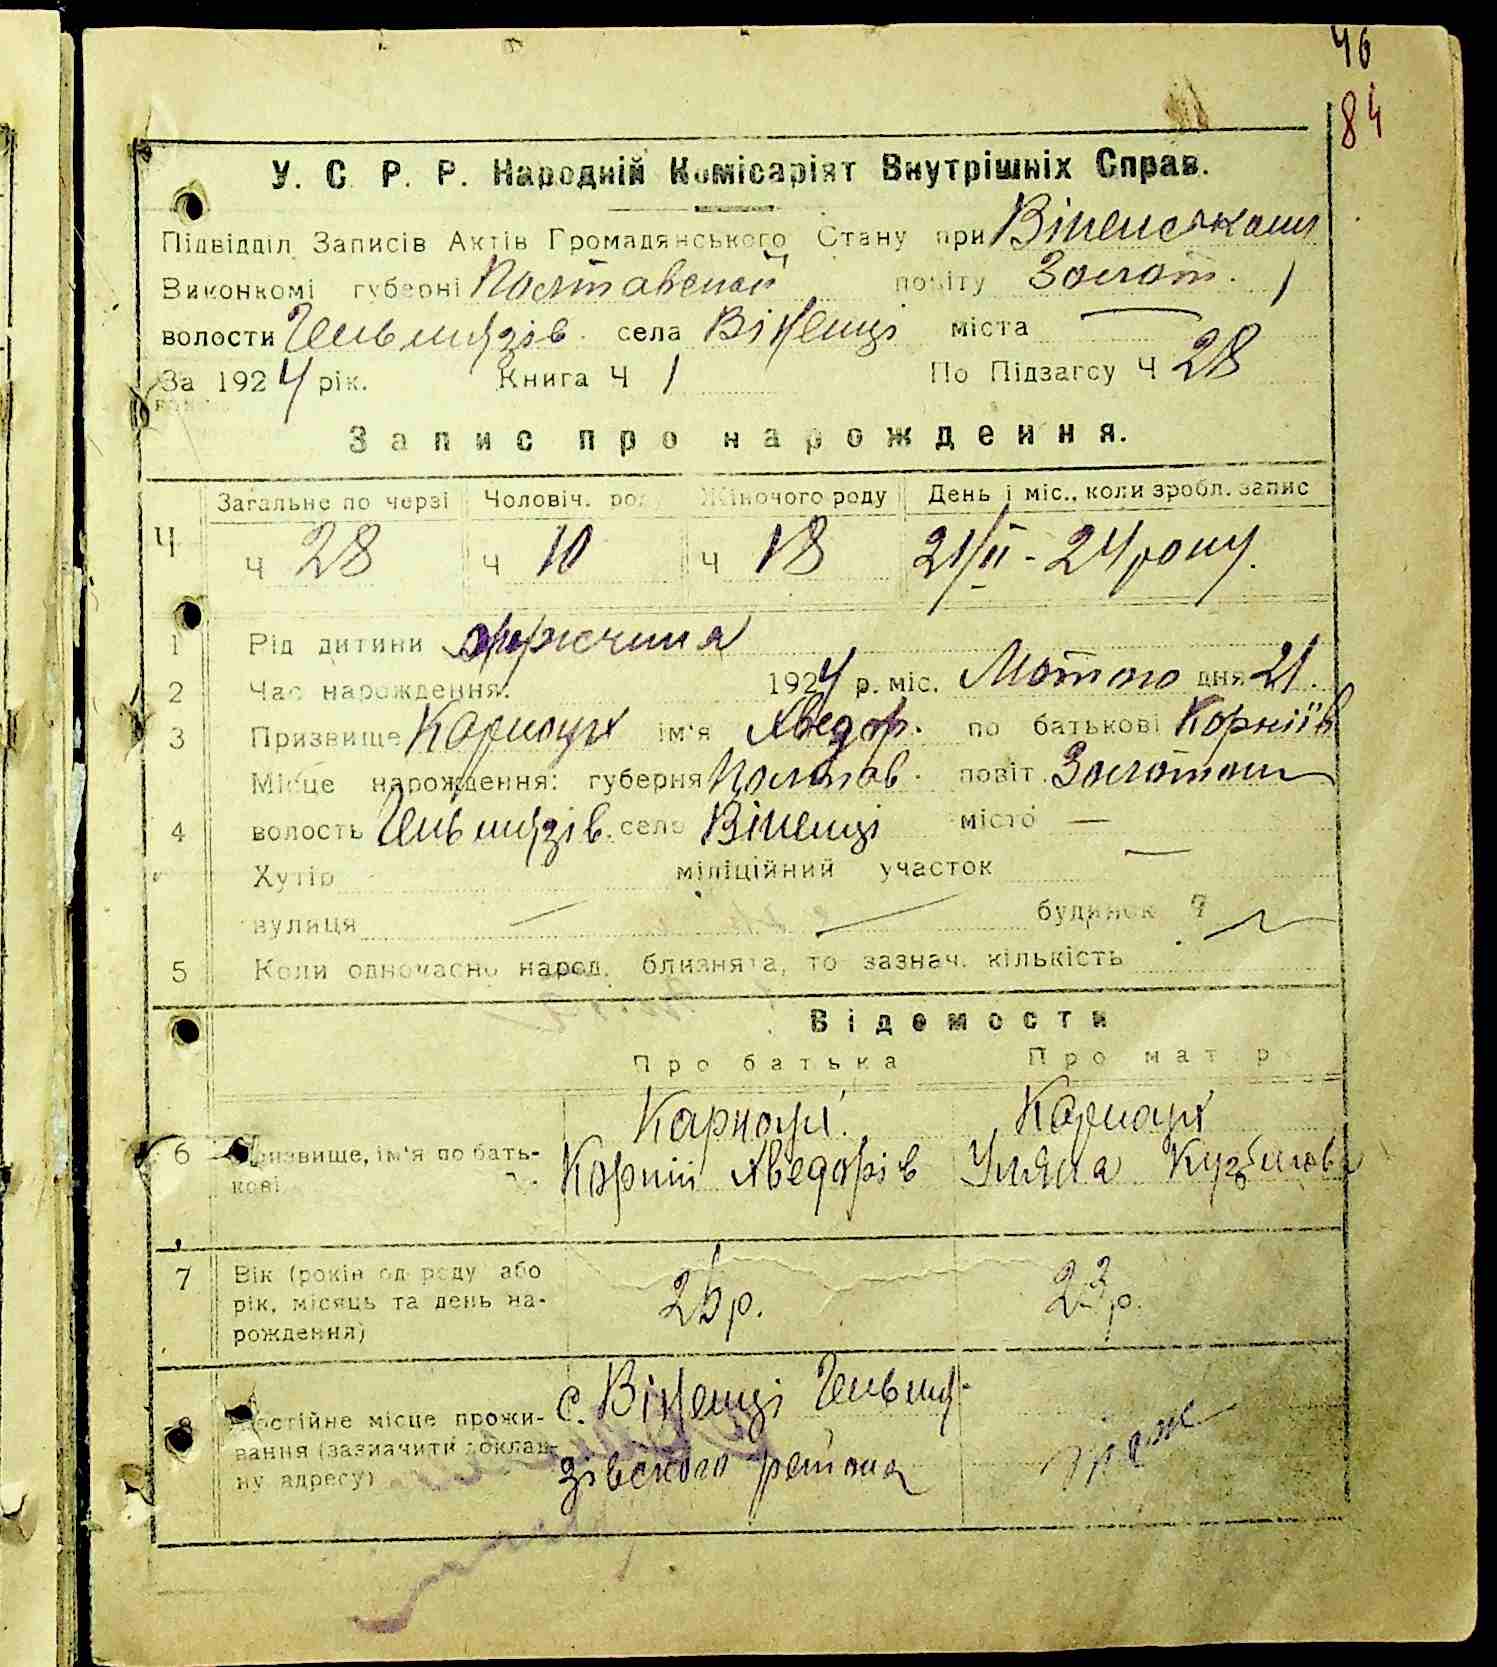 46
84
У. С. Р. Р. Народній Комісаріят Внутрішніх Справ.
Підвідділ Записів Актів Громадянського Стану при Віненськаму
Виконкомі губерні Полтавской повіту Золот.
волости Гельмязів. села Віненці міста —
За 1924 рік. Книга Ч 1 По Підзагсу Ч 28
Запис про нарождення.
Ч Загальне по черзі Чоловіч. роду Жіночого роду День і міс., коли зробл. запис
Ч 28 Ч 10 Ч 18 21/II - 24 року.
1 Рід дитини
2 Час нарождення: 1924 р. міс. Лютого дня 21.
3 Призвище Карнаух ім'я Хведор. по батькові Корніїв
Місце нарождення: губерня Полтав. повіт Золотон
4 волость Гельмязів. село Віненці місто —
Хутір міліційний участок —
вулиця — будинок Ч
5 Коли одночасно народ. близнята, то зазнач. кількість
Відомости
Про батька Про матір
Карнаух. Карнаух
6 Призвище, ім'я по бать- Корній Хведорів Уляна Кузьмова
кові
7 Вік (років од роду або 25 р. 23 р.
рік, місяць та день на-
рождення)
с. Віненці Гельмя-
8 Постійне місце прожи-
вання (зазначити доклад- зівского района
ну адресу)